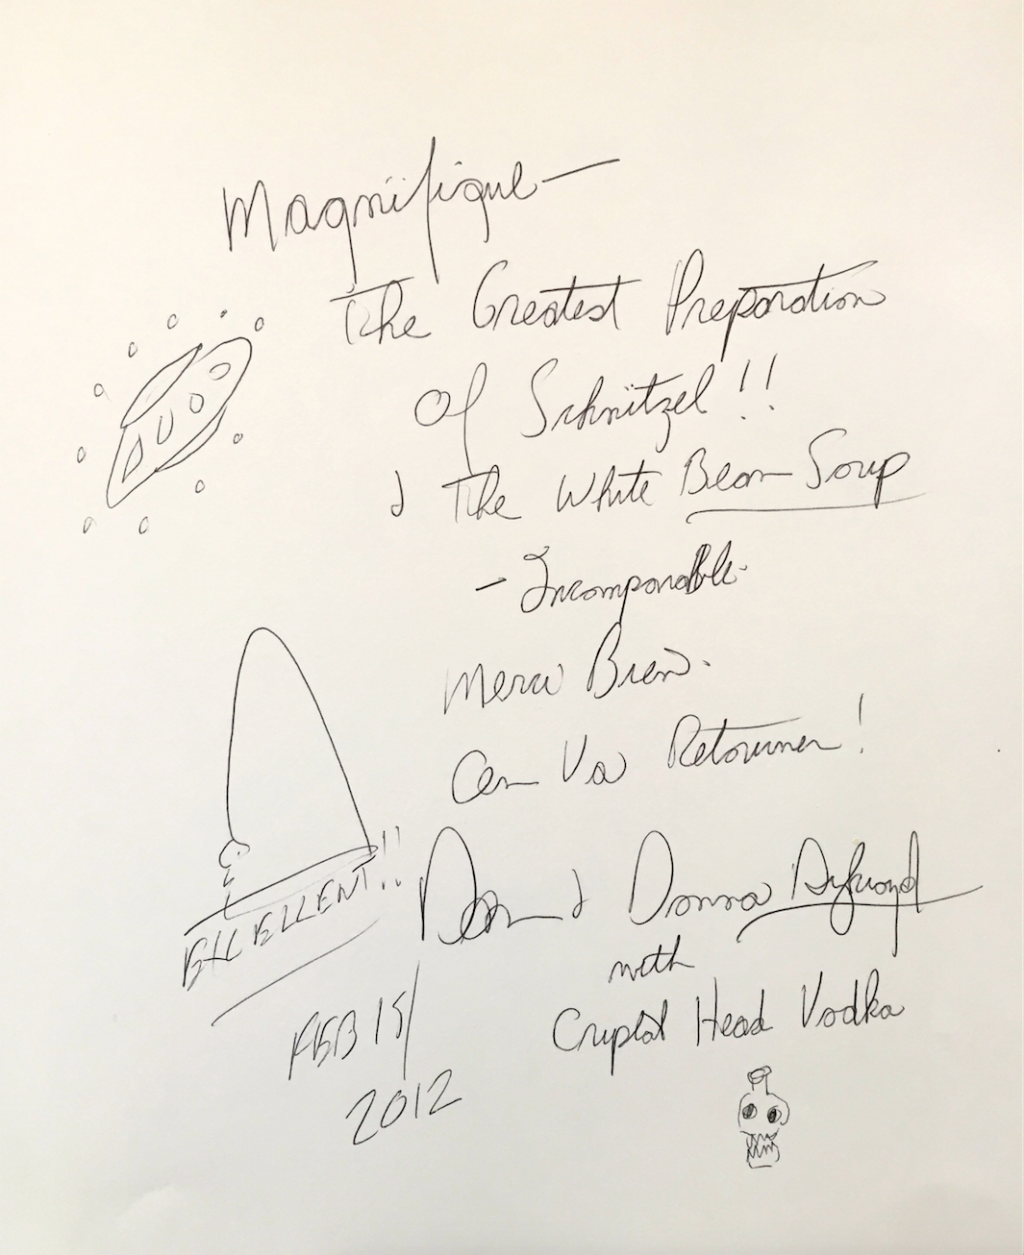 Magnifique —
The Greatest Preparation
Of Schnitzel!!
& The White Bean Soup
- Incomparable.
Merci Bien.
Can Va Retourner!
Dan & Donna Aykroyd
with
Crystal Head Vodka
EXCELLENT!!
FEB 15/
2012